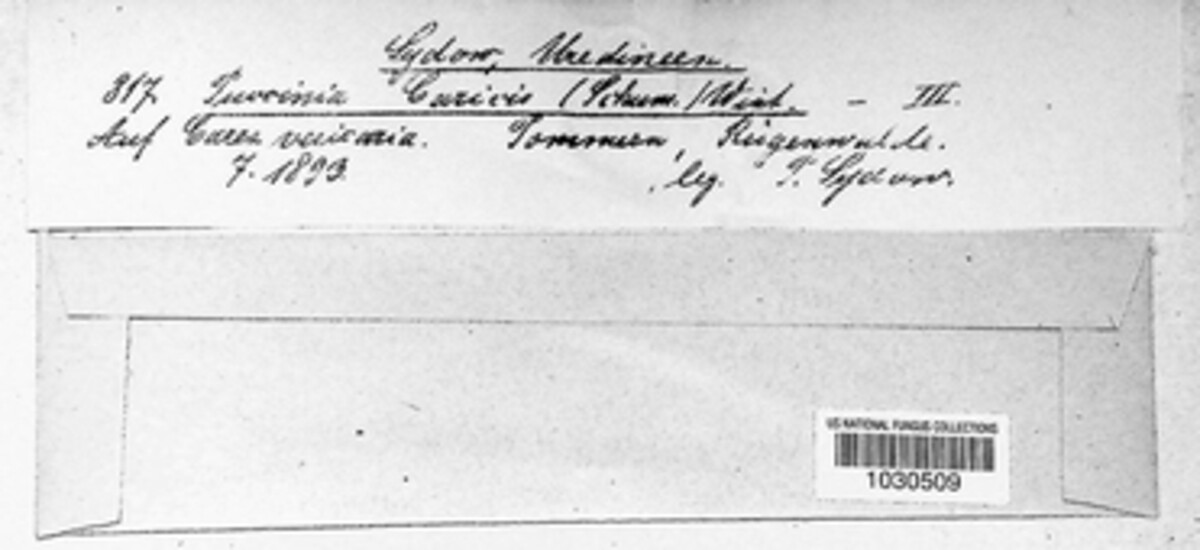 Sydow, Uredineen.
817 Puccinia Caricis (Schum.) Wint. - III.
Auf Carex vesicaria. Pommern, Rügenwalde.
7. 1893. leg. P. Sydow.
US NATIONAL FUNGUS COLLECTIONS
1030509